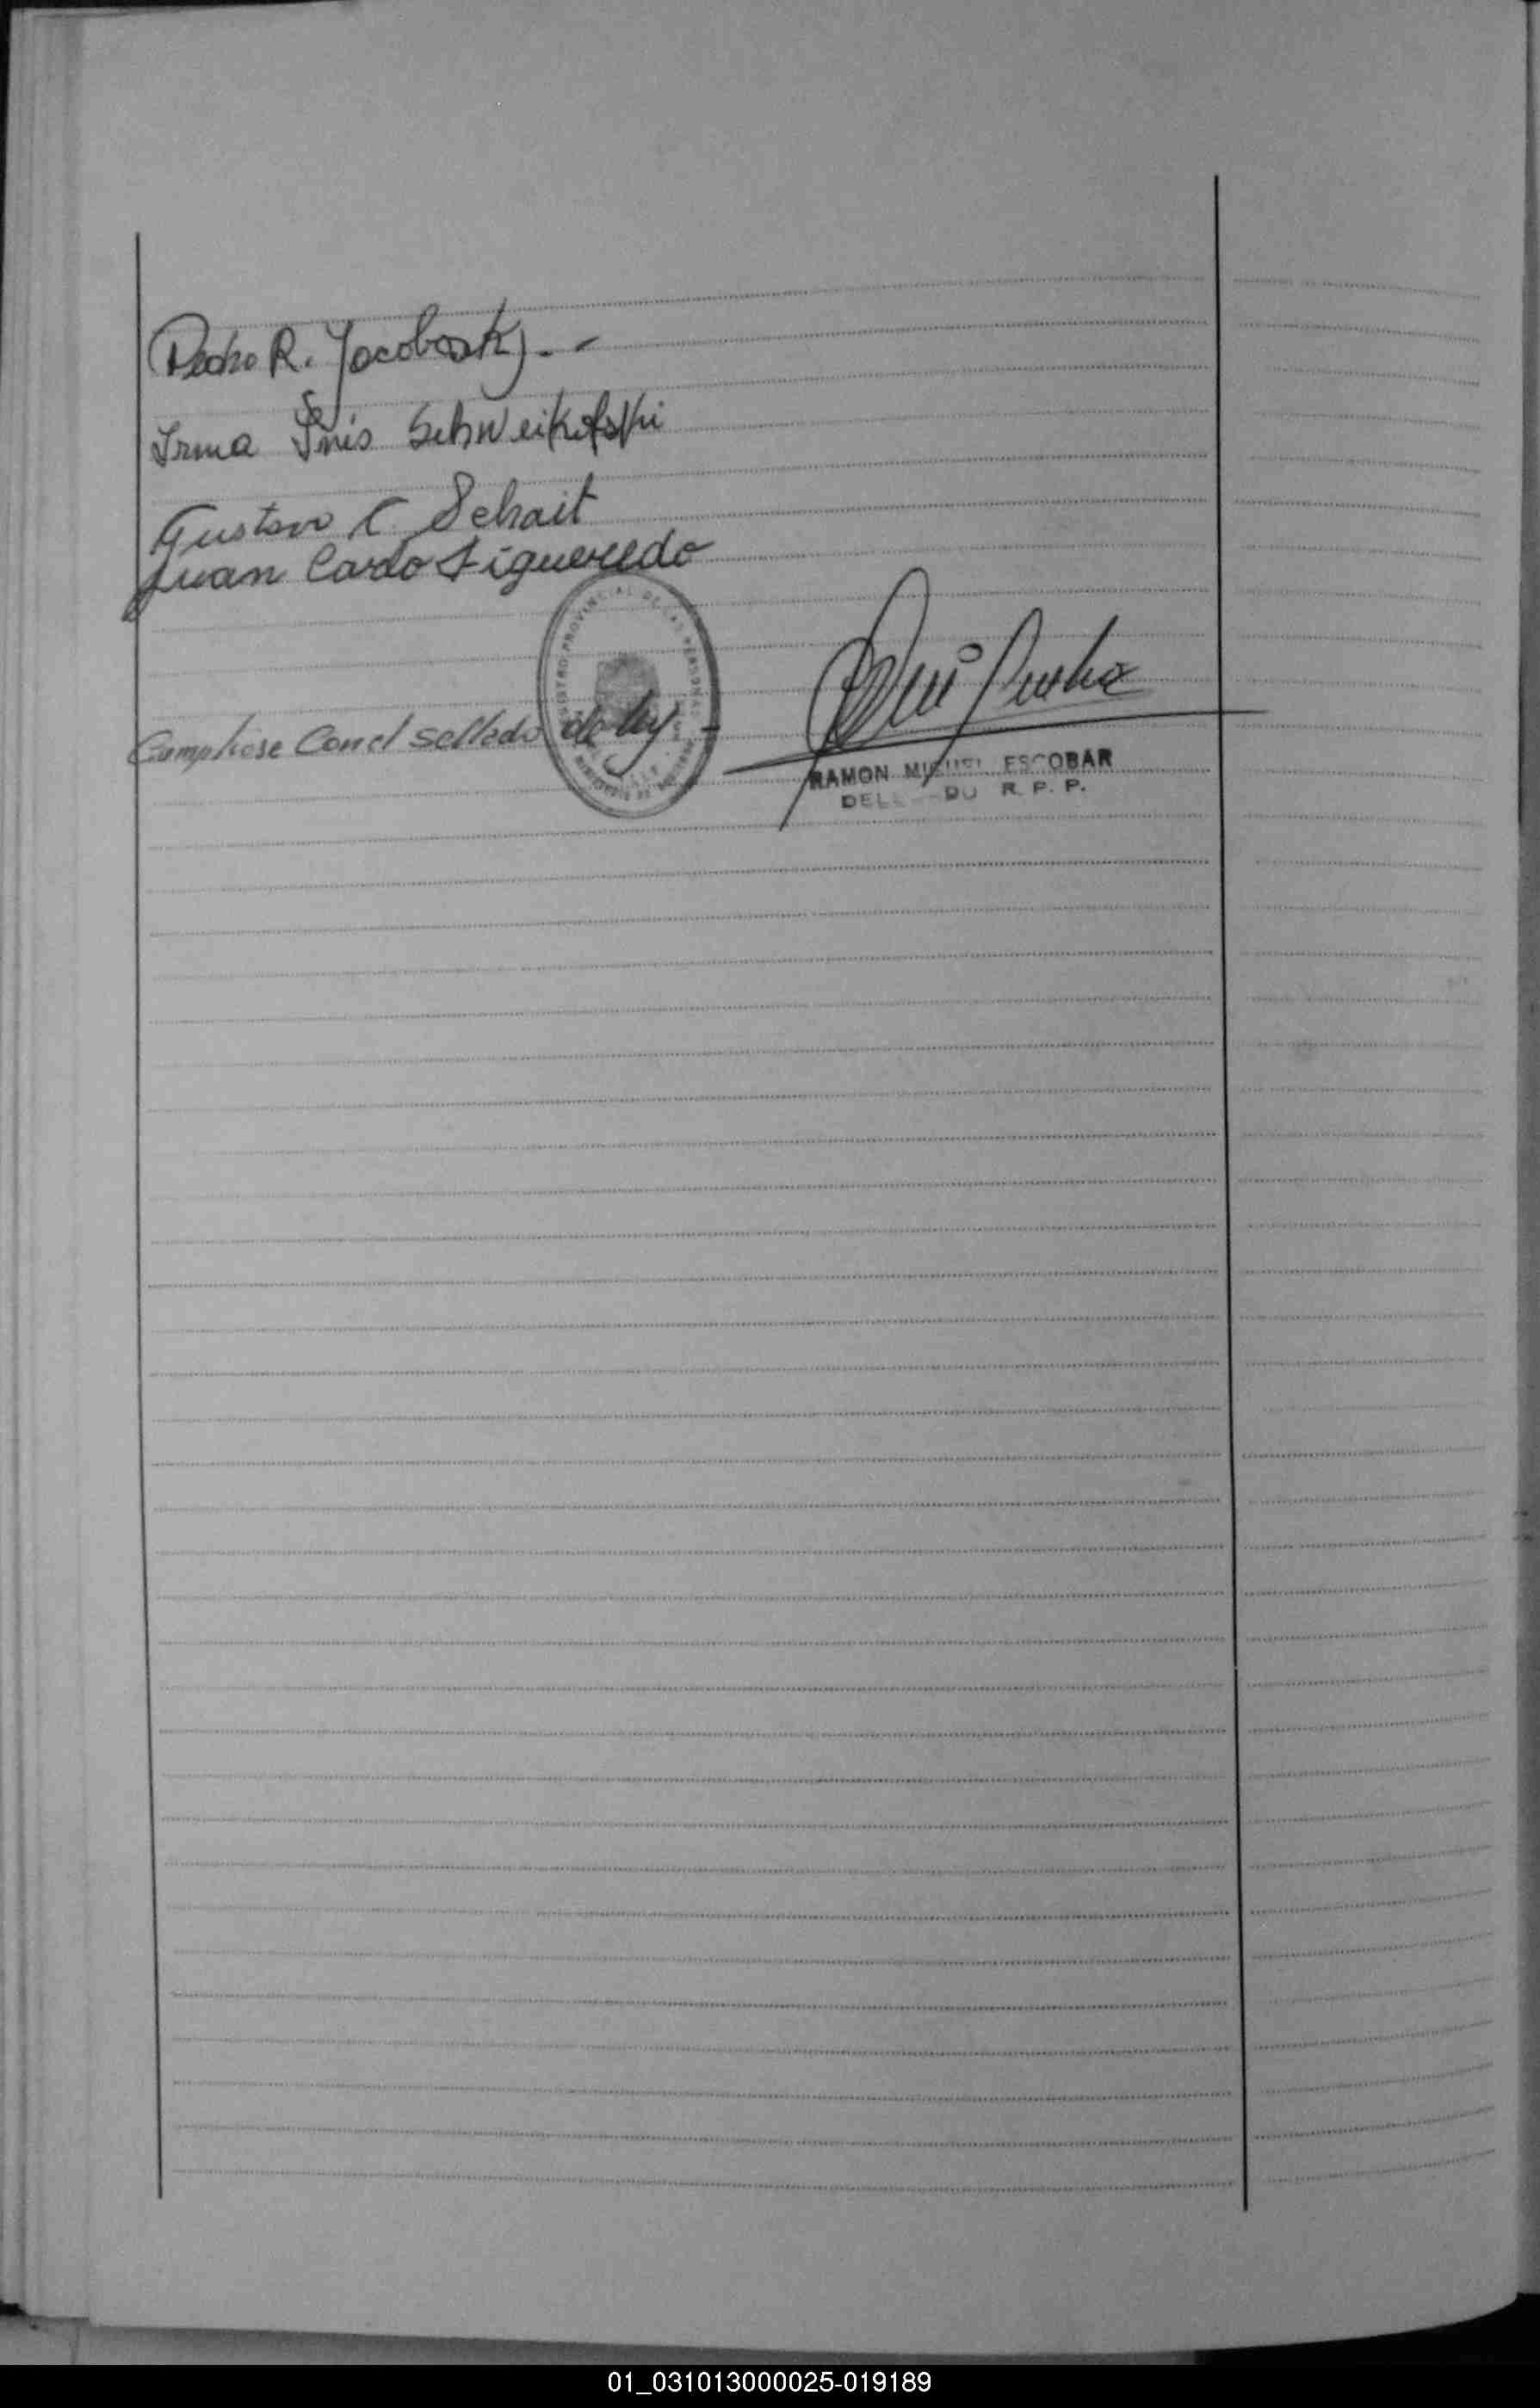 Pedro R. Jacobosky.-
Irma Inés Schweikofski
Gustavo C. Schait
Juan Cardo Figueredo
REGISTRO PROVINCIAL DE LAS PERSONAS
Cumpliose Con el Sellado de ley -
RAMON MIGUEL ESCOBAR
R. P. P.
01_031013000025-019189